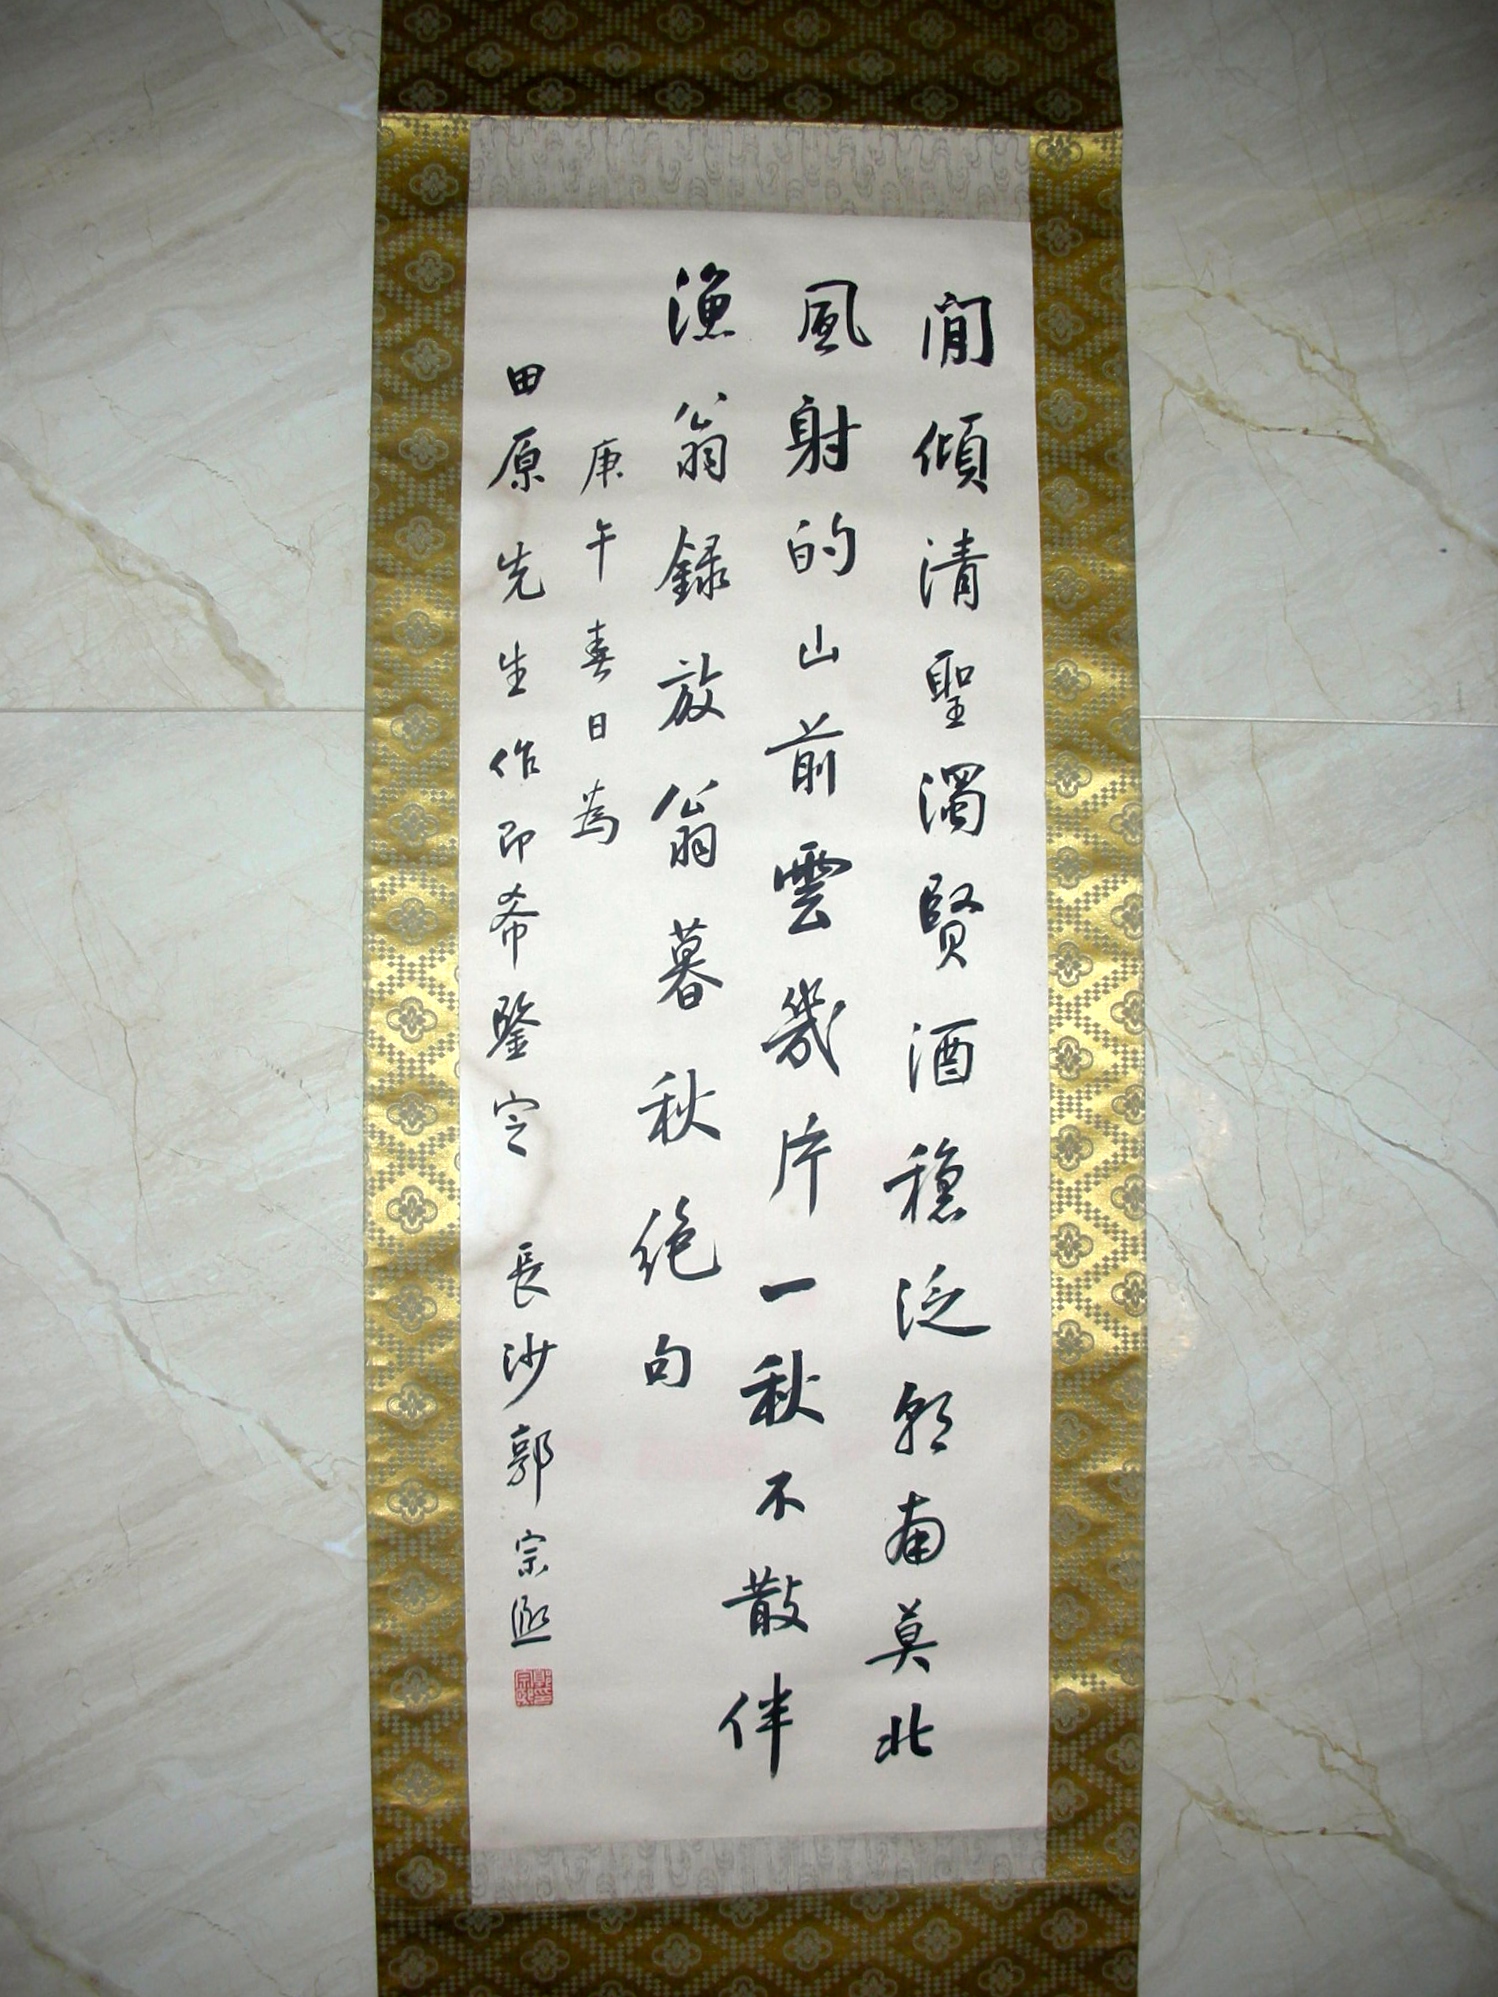 閒傾清聖濁賢酒穩泛朝南莫北
風射的山前雲幾片一秋不散伴
漁翁錄放翁暮秋絕句
庚午春日為
田原先生作即希鑒定 長沙郭宗熙